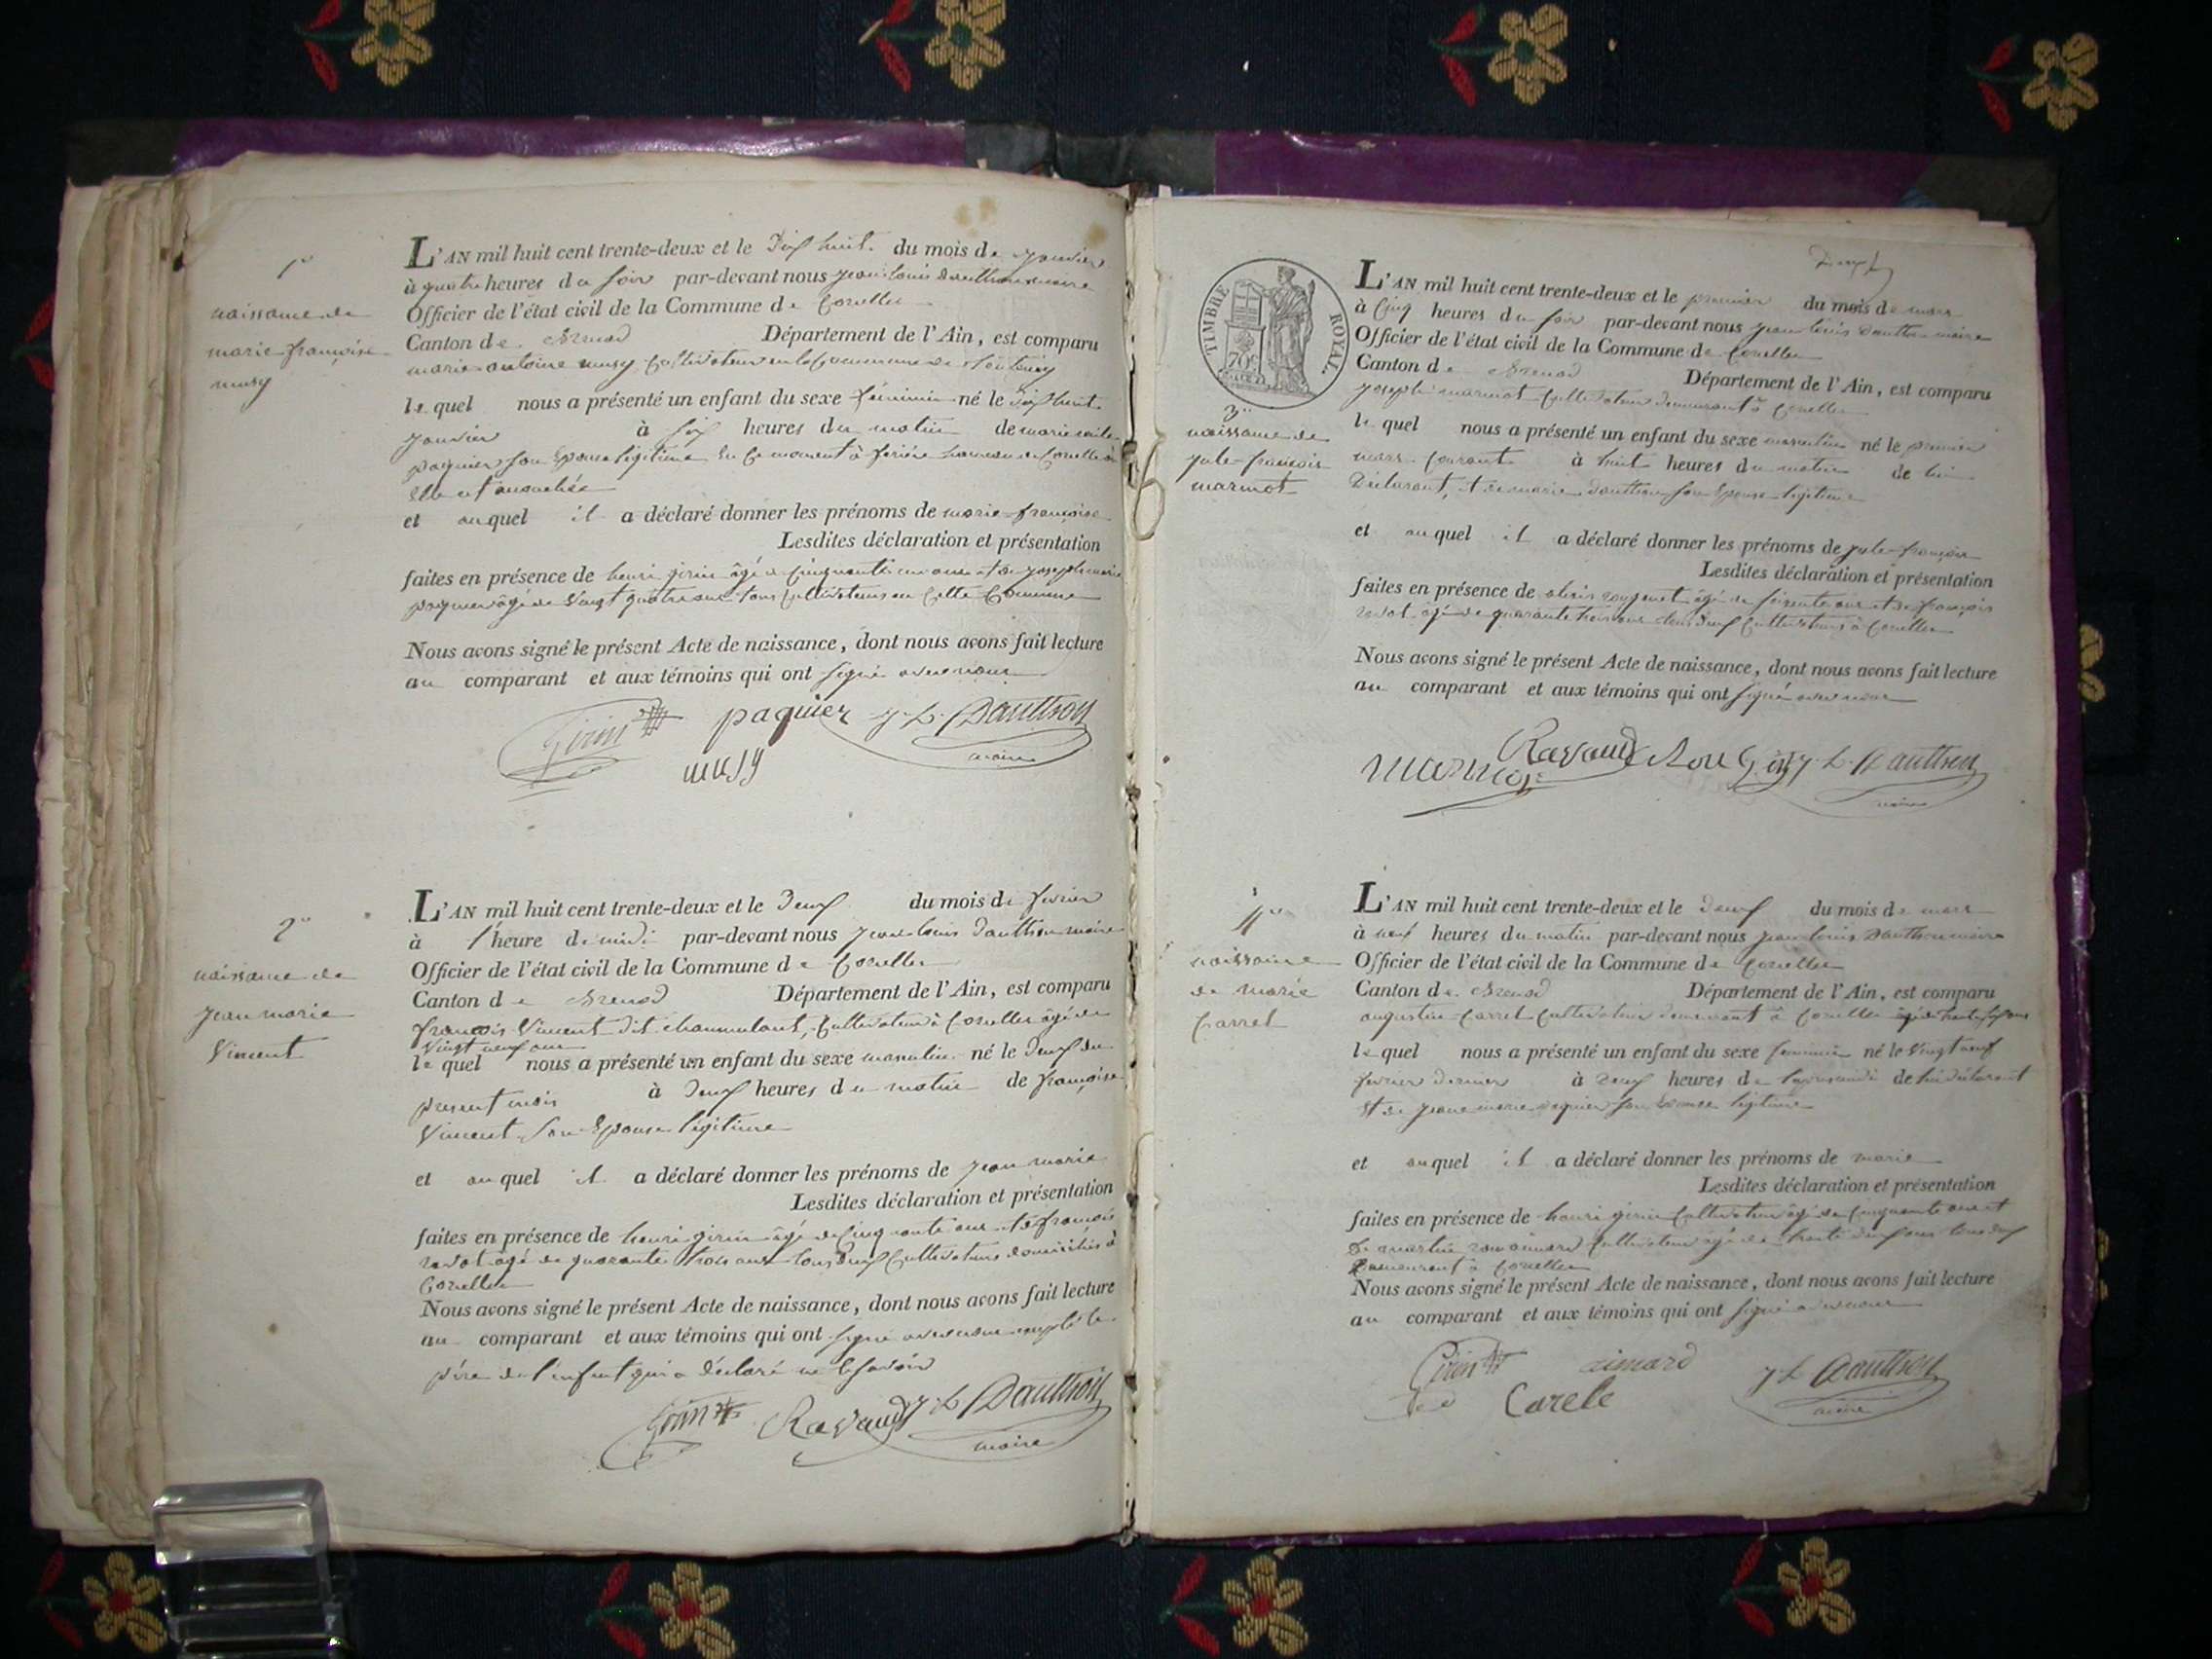 1er
naissance de
marie françoise
musy
L'AN mil huit cent trente-deux et le Dix huit du mois de janvier
à quatre heures du soir par-devant nous jean louis dauthon maire
Officier de l'état civil de la Commune de Corcelles
Canton de Brenod Département de l'Ain, est comparu
marie antoine musy Cultivateur en la Commune de
le quel nous a présenté un enfant du sexe féminin né le dix huit
janvier à six heures du matin de marie
paquier son Epouse légitime en ce moment à hameau de Corcelle où
elle est accouchée
et auquel il a déclaré donner les prénoms de marie-françoise
Lesdites déclaration et présentation
faites en présence de henri girin âgé de Cinquante ans et de joseph marie
paquier âgé de Vingt quatre ans tous Cultivateurs en Cette Commune
Nous avons signé le présent Acte de naissance, dont nous avons fait lecture
au comparant et aux témoins qui ont signé avec nous
Girin paquier J. L. Dauthon
musy maire
2e
naissance de
jean marie
Vincent
L'AN mil huit cent trente-deux et le Deux du mois de fevrier
à l'heure de midi par-devant nous jean louis Dauthon maire
Officier de l'état civil de la Commune de Corcelles
Canton de Brenod Département de l'Ain, est comparu
françois Vincent dit Cultivateur à Corcelles âgé de
Vingt neuf ans
le quel nous a présenté un enfant du sexe masculin né le Deux du
present mois à Deux heures du matin de françoise
Vincent son Epouse légitime
et auquel il a déclaré donner les prénoms de jean marie
Lesdites déclaration et présentation
faites en présence de henri girin âgé de Cinquante ans et de françois
ravot âgé de quarante trois ans tous deux Cultivateurs domiciliés à
Corcelles
Nous avons signé le présent Acte de naissance, dont nous avons fait lecture
au comparant et aux témoins qui ont signé avec nous excepté le
père de l'enfant qui a déclaré ne le savoir
Girin Ravaud J. L. Dauthon
maire
Deux
TIMBRE ROYAL.
70c
3e
naissance de
jule-françois
marmot
L'AN mil huit cent trente-deux et le premier du mois de mars
à Cinq heures du soir par-devant nous jean louis Dauthon maire
Officier de l'état civil de la Commune de Corcelles
Canton de Brenod Département de l'Ain, est comparu
joseph marmot Cultivateur demeurant à Corcelles
le quel nous a présenté un enfant du sexe masculin né le premier
mars courant à huit heures du matin de lui
Déclarant, et de marie dauthon son Epouse légitime
et auquel il a déclaré donner les prénoms de jule-françois
Lesdites déclaration et présentation
faites en présence de âgé de soixante ans et de françois
ravot âgé de quarante trois ans tous deux Cultivateurs à Corcelles
Nous avons signé le présent Acte de naissance, dont nous avons fait lecture
au comparant et aux témoins qui ont signé avec nous
marmot Ravaud J. L. Dauthon
maire
4e
naissance
de marie
Carrel
L'AN mil huit cent trente-deux et le deux du mois de mars
à neuf heures du matin par-devant nous jean louis Dauthon maire
Officier de l'état civil de la Commune de Corcelles
Canton de Brenod Département de l'Ain, est comparu
augustin Carrel Cultivateur demeurant à Corcelles âgé de trente six ans
le quel nous a présenté un enfant du sexe feminin né le Vingt neuf
fevrier dernier à Deux heures de l'apresmidi de lui déclarant
et de jeane marie paquier son Epouse légitime
et auquel il a déclaré donner les prénoms de marie
Lesdites déclaration et présentation
faites en présence de henri girin Cultivateur âgé de Cinquante ans et
de martin Cultivateur âgé de trente deux ans tous deux
Demeurant à Corcelles
Nous avons signé le présent Acte de naissance, dont nous avons fait lecture
au comparant et aux témoins qui ont signé avec nous
Girin aimard J L Dauthon
Carele maire